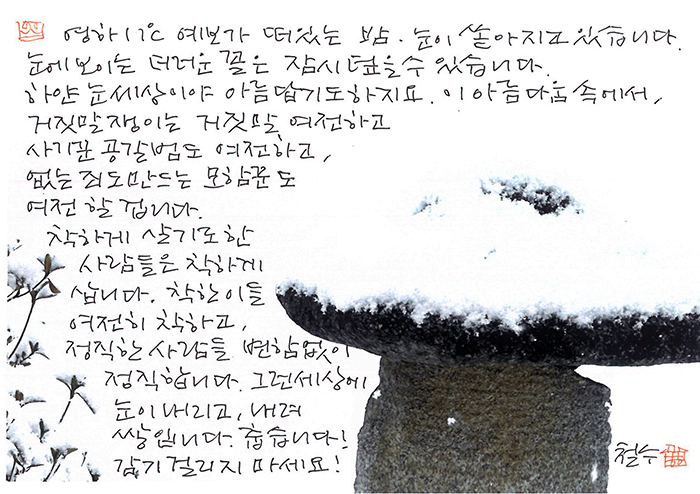 영하 17℃ 예보가 떠있는 밤. 눈이 쏟아지고 있습니다.
눈에보이는 더러운 꼴은 잠시 덮을수 있습니다.
하얀 눈세상이야 아름답기도하지요. 이 아름다움 속에서,
거짓말쟁이는 거짓말 여전하고
사기꾼 공갈범도 여전하고,
없는 죄도만드는 모함꾼도
여전 할 겁니다.
착하게 살기로한
사람들은 착하게
삽니다. 착한이들
여전히 착하고,
정직한 사람들 변함없이
정직합니다. 그런세상에
눈이 내리고, 내려
쌓입니다. 춥습니다!
감기 걸리지 마세요!
철수